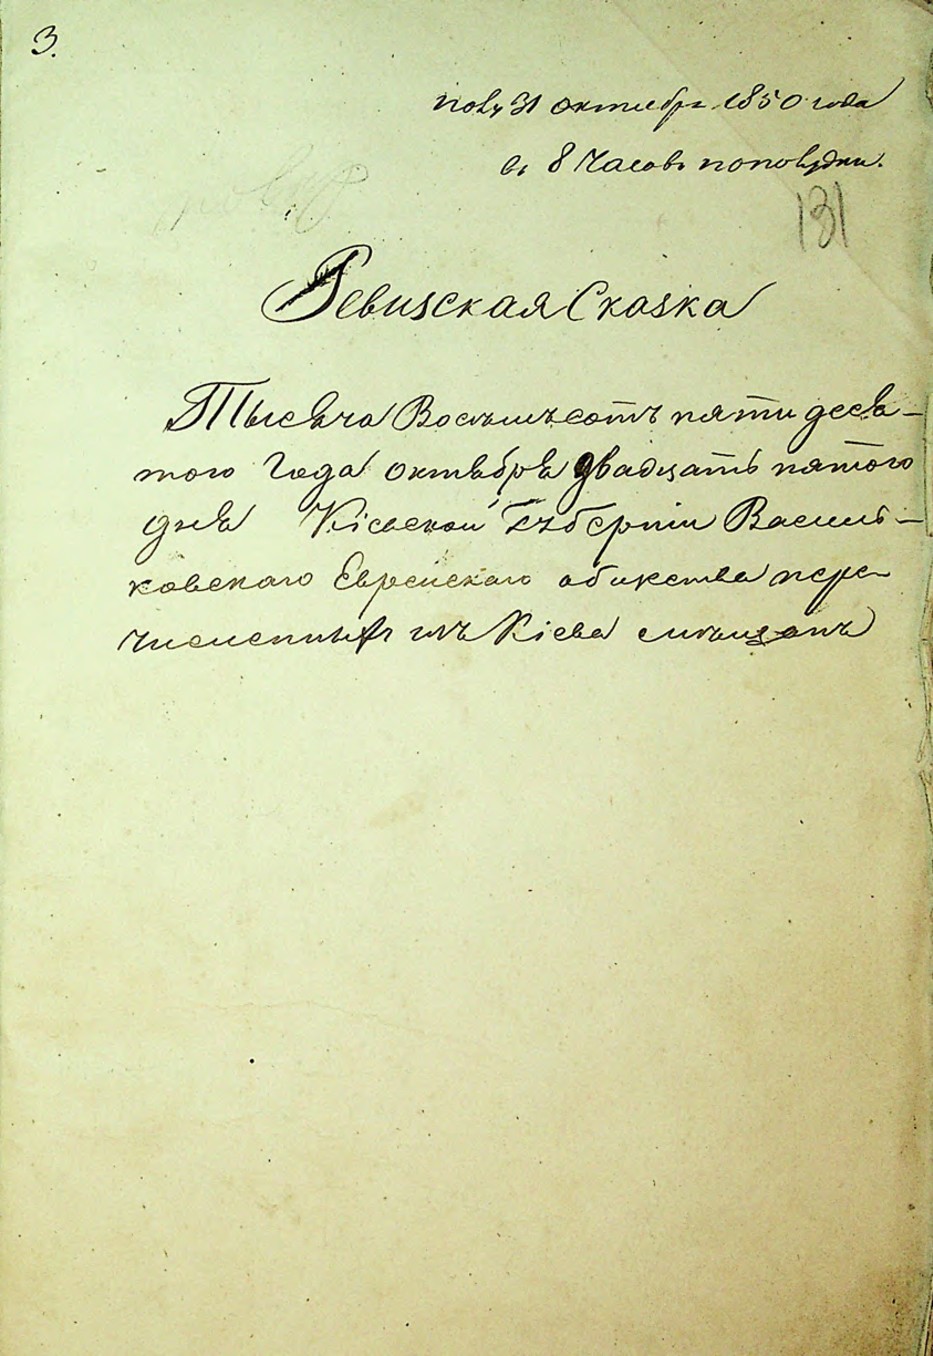 3.
полу 31 октября 1850 года
въ 8 Часовъ пополудни.
131
Ревизская Сказка
Тысяча Восемьсотъ пяти деся-
того Года октября двадцать пятого
дня Кіевской Губерніи Василь-
ковскаго Еврейскаго общества пере-
численныхъ изъ Кіева мѣщанъ